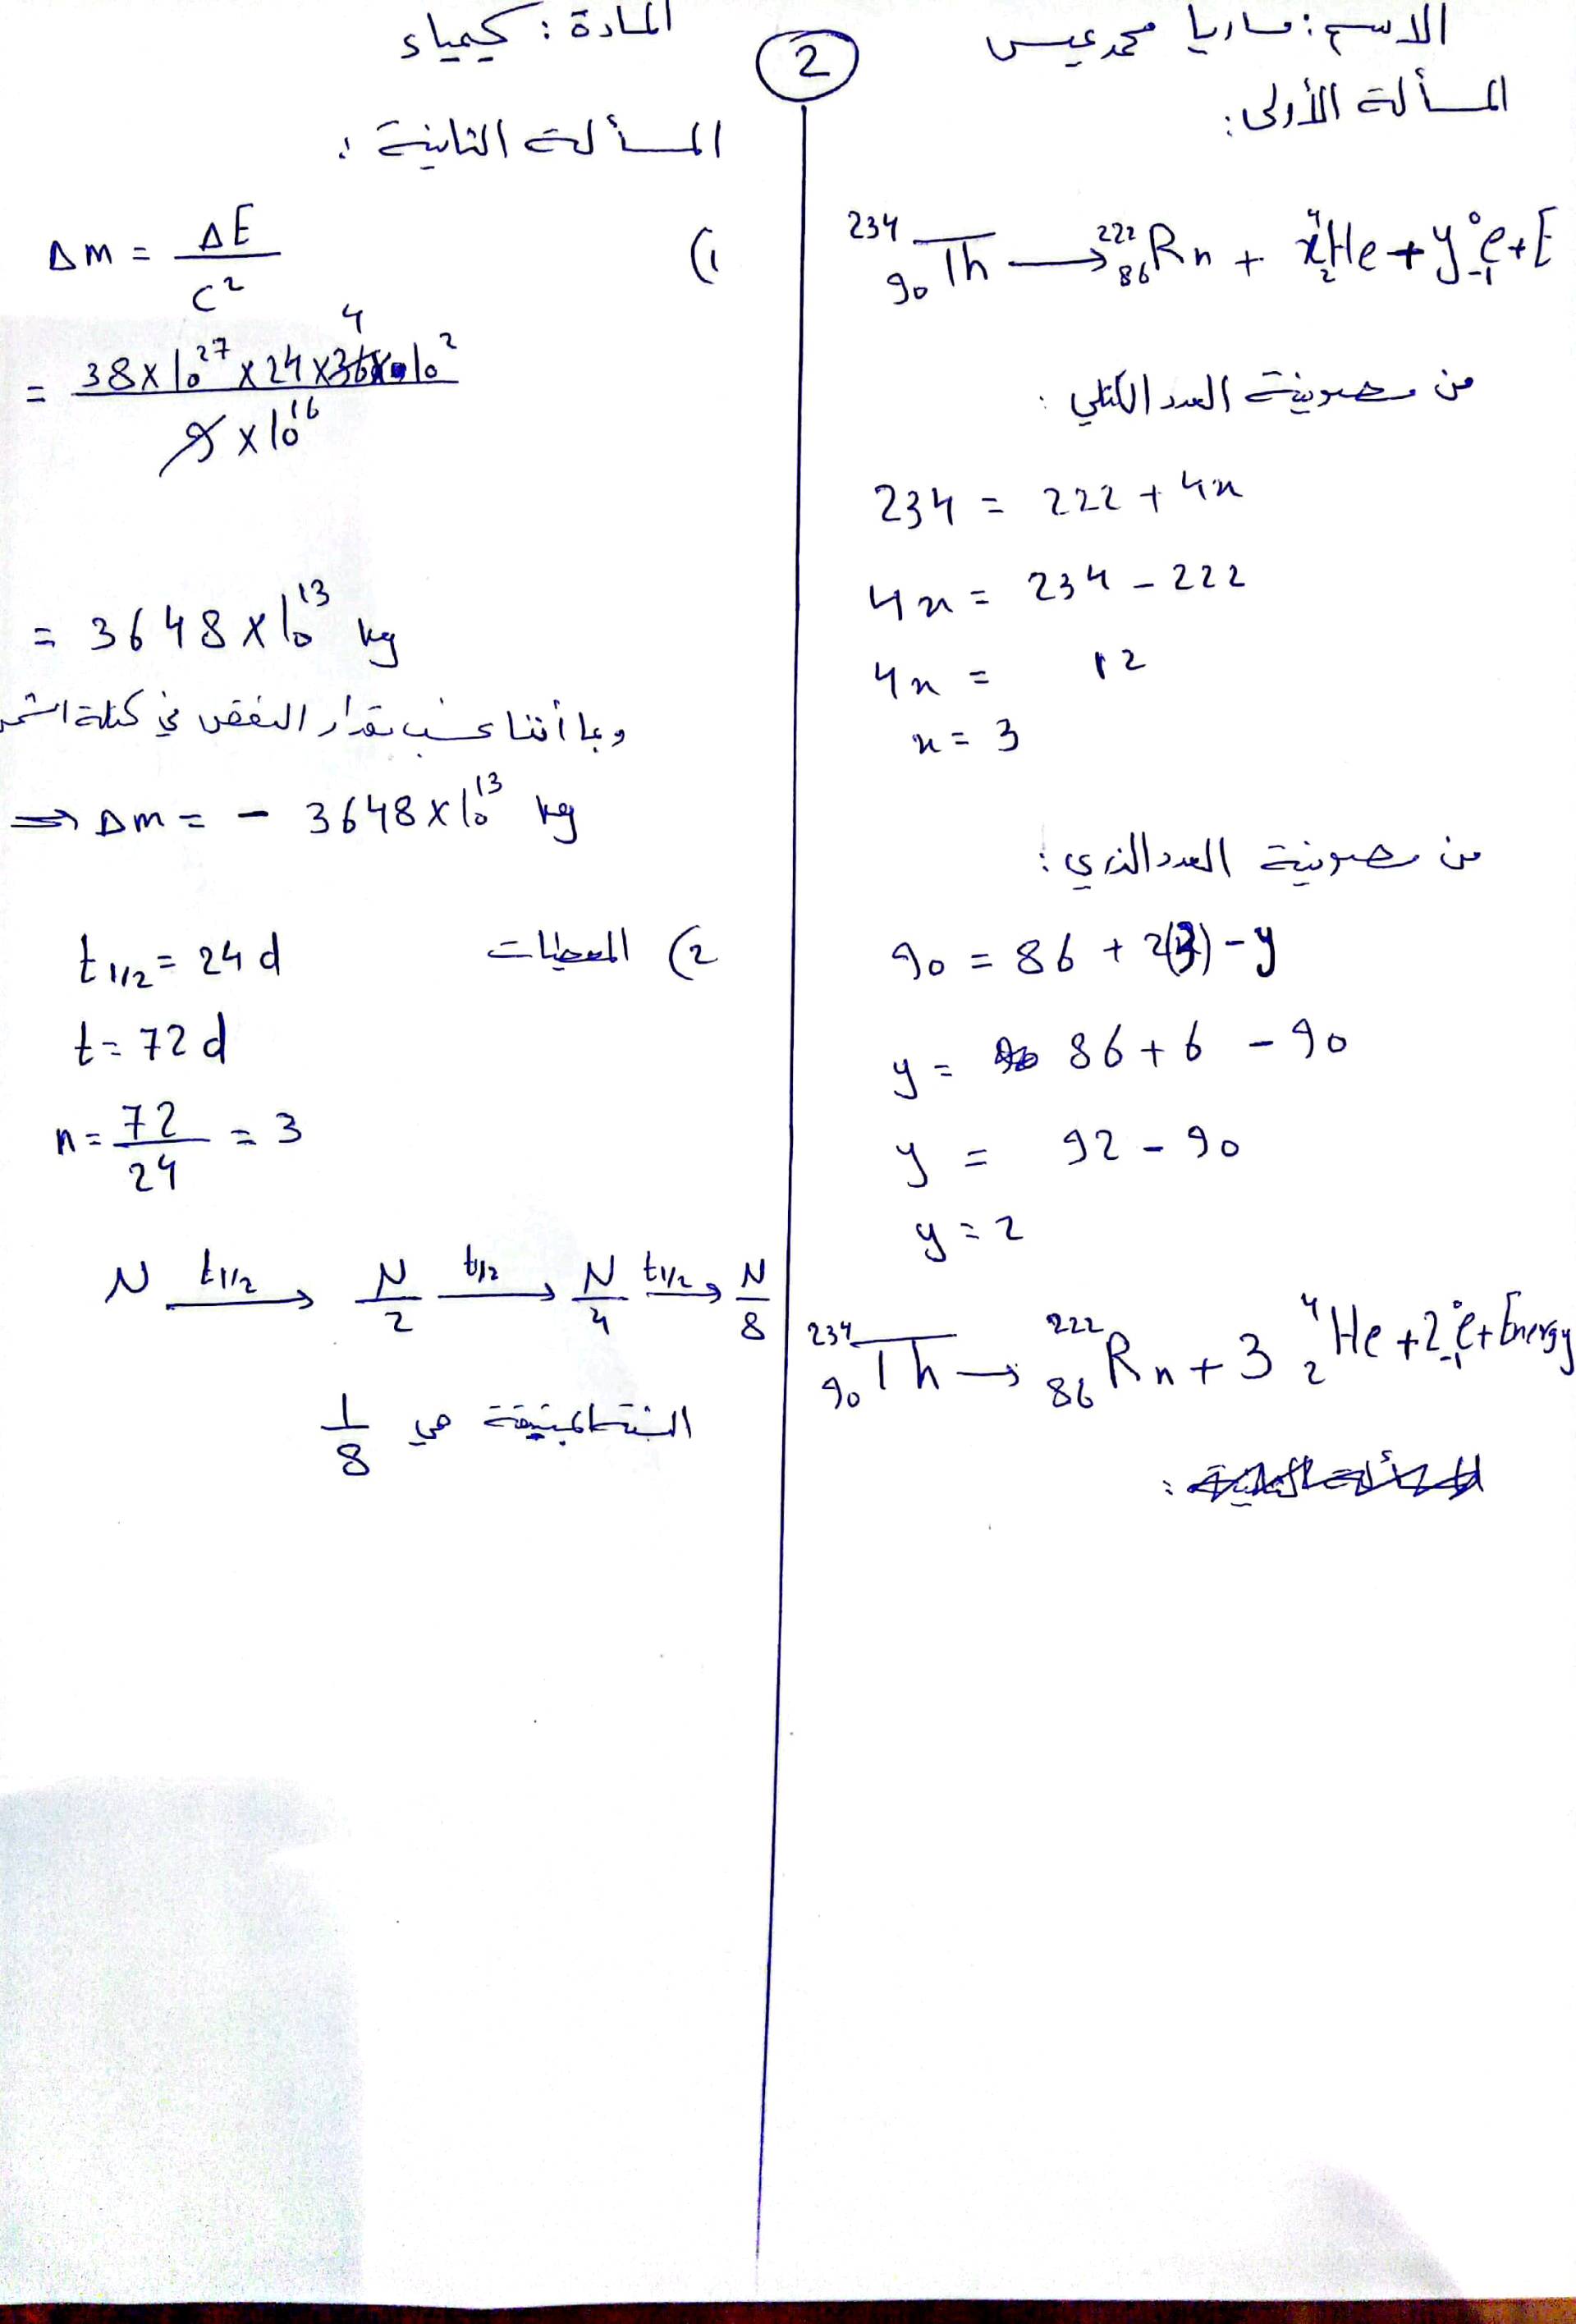 الاسم : ماريا محمد عيسى
2
المادة : كيمياء
المسألة الأولى :
²³⁴₉₀Th → ²²²₈₆Rn + x⁴₂He + y⁰₋₁e + E
من مصونية العدد الكتلي :
234 = 222 + 4x
4x = 234 - 222
4x = 12
x = 3
من مصونية العدد الذري :
90 = 86 + 2(3) - y
y = 86 + 6 - 90
y = 92 - 90
y = 2
²³⁴₉₀Th → ²²²₈₆Rn + 3 ⁴₂He + 2⁰₋₁e + Energy
المسألة الثانية :
1) Δm = ΔE / c²
= 38 × 10²⁷ × 24 × 36 4 × 10² / 9 × 10¹⁶
= 3648 × 10¹³ kg
وبما أننا نحسب مقدار النقص في كتلة الشمس
⇒ Δm = - 3648 × 10¹³ kg
2) المعطيات t1/2 = 24 d
t = 72 d
n = 72 / 24 = 3
N —t1/2→ N/2 —t1/2→ N/4 —t1/2→ N/8
المتبقية هي 1/8